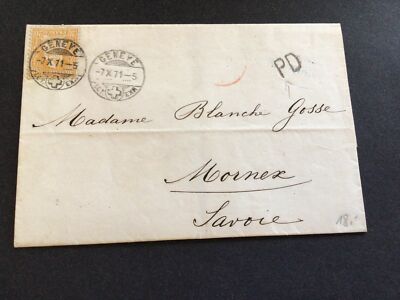 GENEVE
-7 X 71-5
GENEVE
-7 X 71-5
PD
Madame Blanche Gosse
Mornex
Savoie
18.-